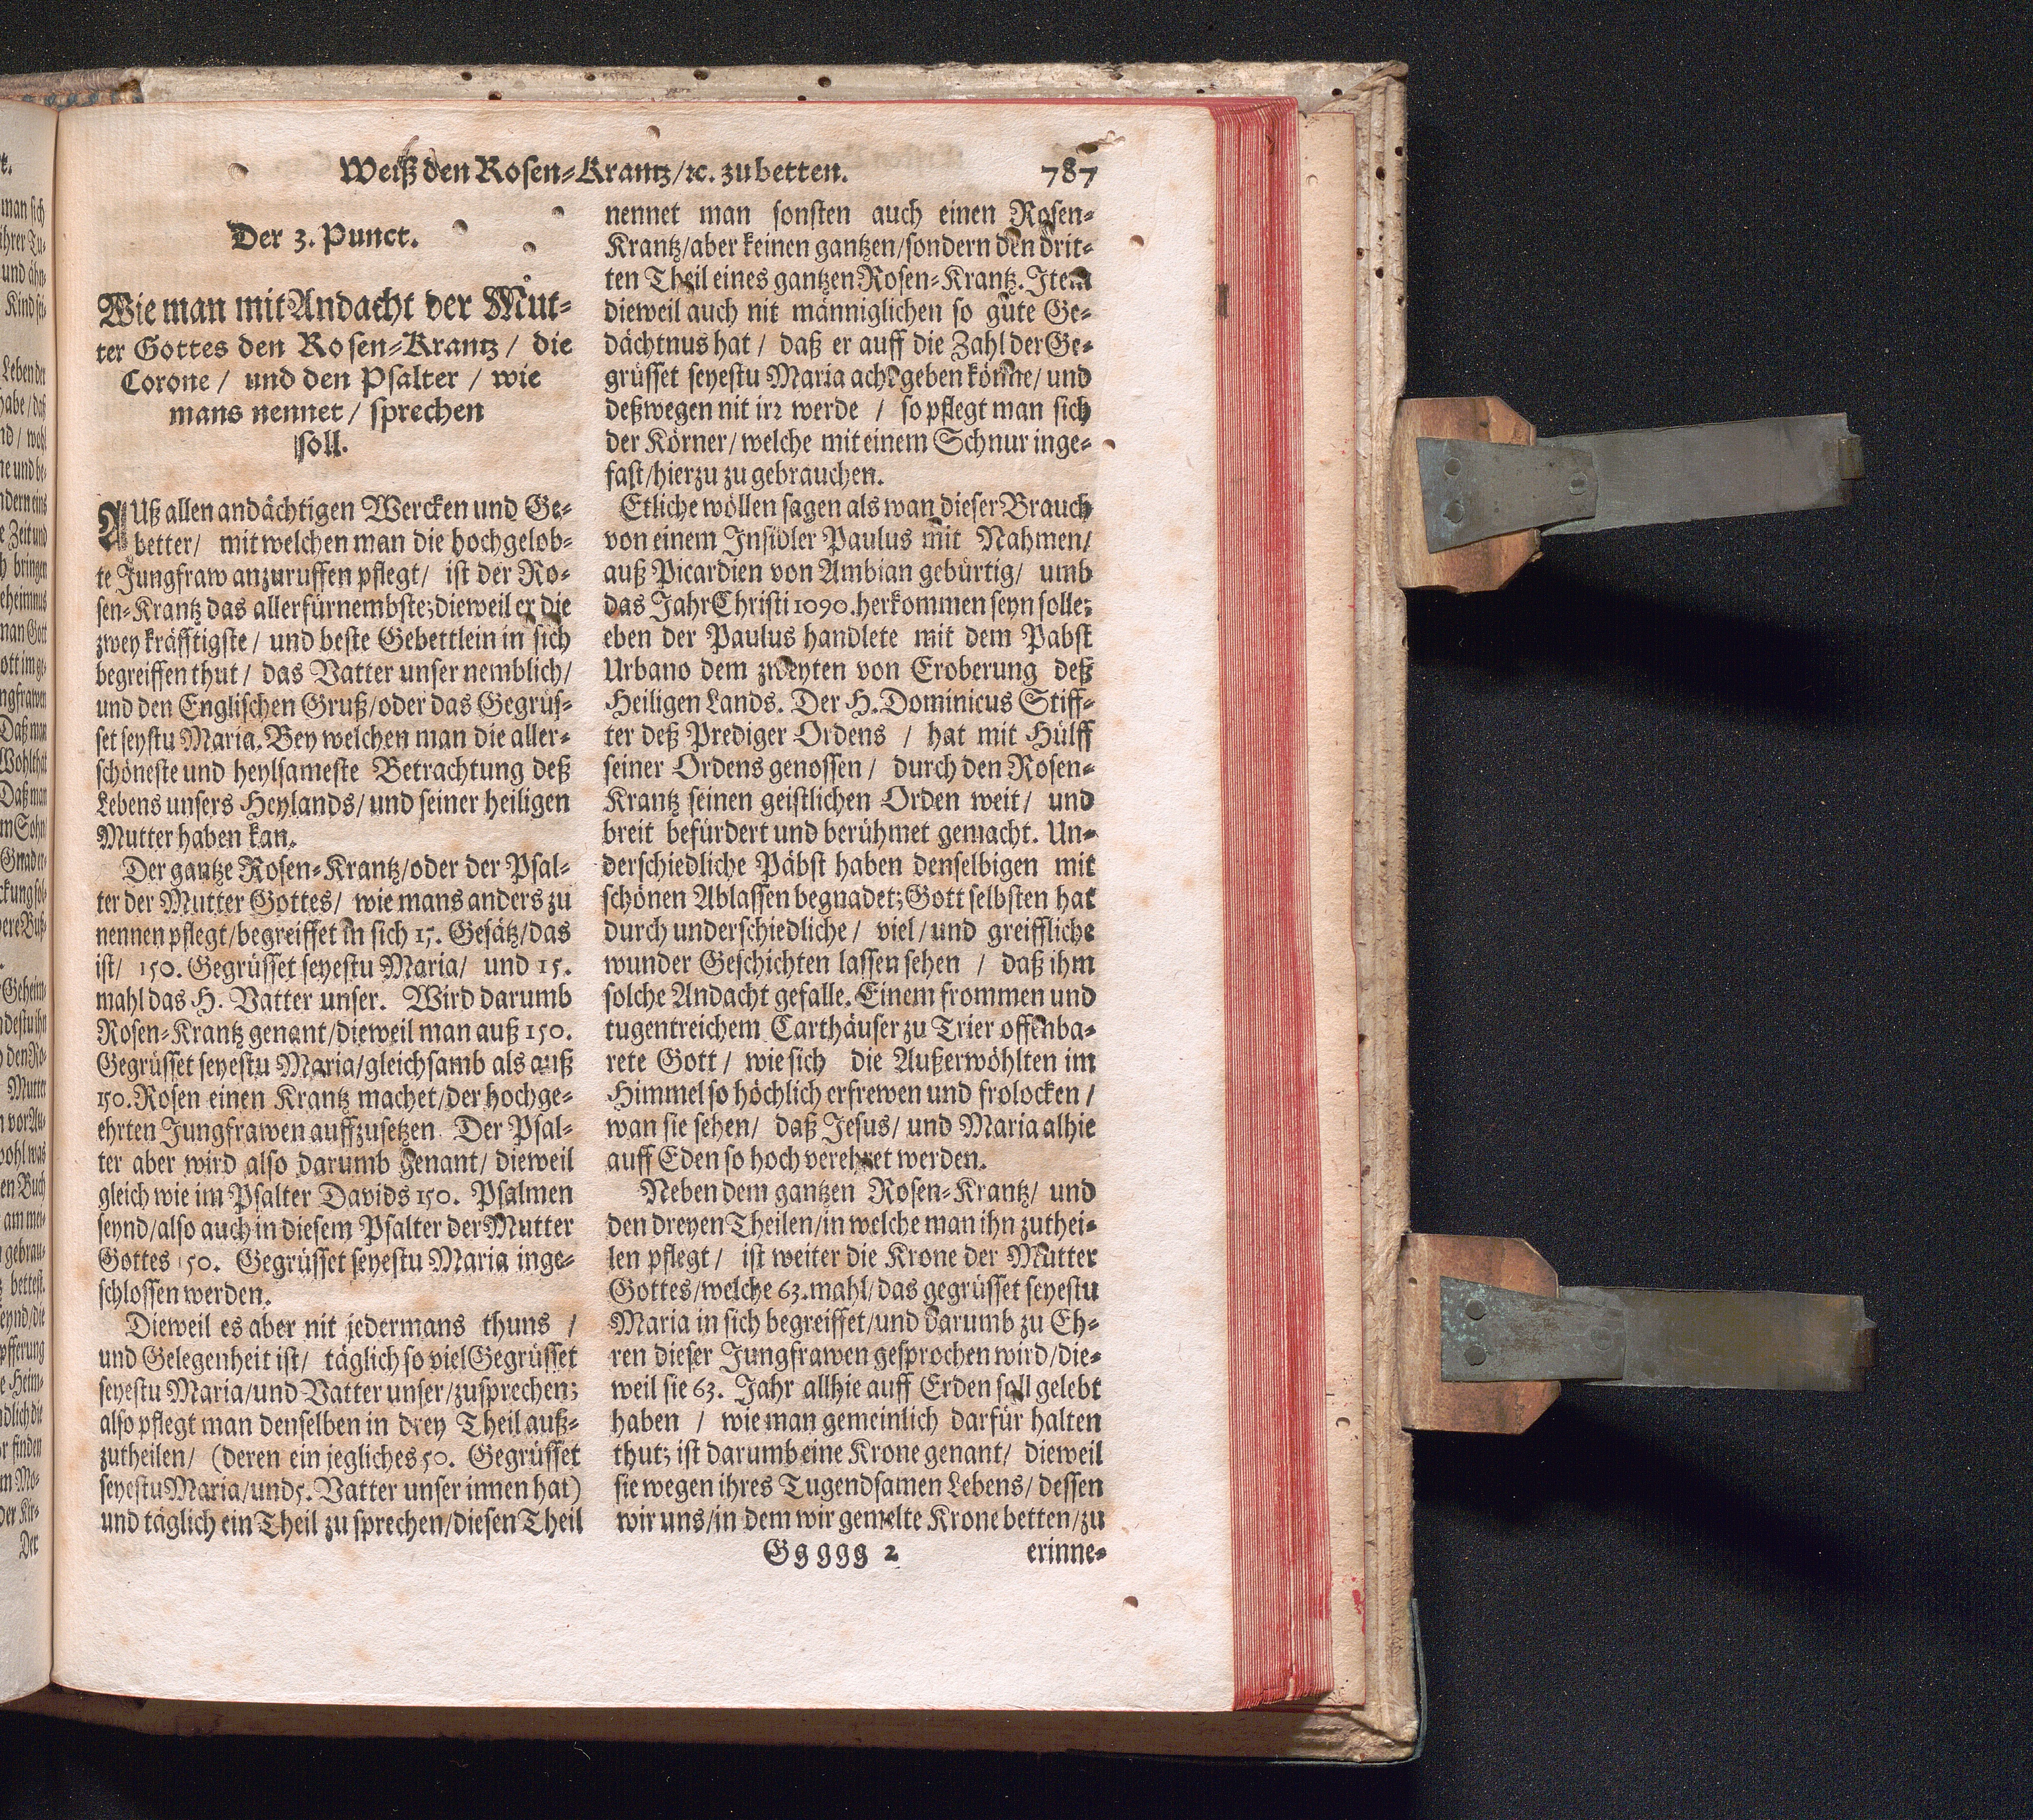 Weiß den Rosen-Krantz/ꝛc. zu betten. 787
Der 3. Punct.
Wie man mit Andacht der Mut-
ter Gottes den Rosen-Krantz / die
Corone / und den Psalter / wie
mans nennet / sprechen
soll.
AUß allen andächtigen Wercken und Ge-
better/ mit welchen man die hochgelob-
te Jungfraw anzuruffen pflegt/ ist der Ro-
sen-Krantz das allerfürnembste; dieweil er die
zwey kräfftigste / und beste Gebettlein in sich
begreiffen thut / das Vatter unser nemblich/
und den Englischen Gruß/oder das Gegrüs-
set seystu Maria. Bey welchen man die aller-
schöneste und heylsameste Betrachtung deß
Lebens unsers Heylands/ und seiner heiligen
Mutter haben kan.
Der gantze Rosen-Krantz/oder der Psal-
ter der Mutter Gottes/ wie mans anders zu
nennen pflegt/begreiffet in sich 15. Gesätz/das
ist/ 150. Gegrüsset seyestu Maria/ und 15.
mahl das H. Vatter unser. Wird darumb
Rosen-Krantz genant/dieweil man auß 150.
Gegrüsset seyestu Maria/gleichsamb als auß
150. Rosen einen Krantz machet/der hochge-
ehrten Jungfrawen auffzusetzen. Der Psal-
ter aber wird also darumb genant/ dieweil
gleich wie im Psalter Davids 150. Psalmen
seynd/also auch in diesem Psalter der Mutter
Gottes 150. Gegrüsset seyestu Maria inge-
schlossen werden.
Dieweil es aber nit jedermans thuns /
und Gelegenheit ist/ täglich so viel Gegrüsset
seyestu Maria/und Vatter unser/zusprechen;
also pflegt man denselben in drey Theil auß-
zutheilen/ (deren ein jegliches 50. Gegrüsset
seyestu Maria/und 5. Vatter unser innen hat)
und täglich ein Theil zu sprechen/diesen Theil
nennet man sonsten auch einen Rosen-
Krantz/aber keinen gantzen/sondern den drit-
ten Theil eines gantzen Rosen-Krantz. Item
dieweil auch nit männiglichen so gute Ge-
dächtnus hat / daß er auff die Zahl der Ge-
grüsset seyestu Maria acht geben könne/ und
deßwegen nit irꝛ werde / so pflegt man sich
der Körner/ welche mit einem Schnur inge-
fast/hierzu zu gebrauchen.
Etliche wöllen sagen als wan dieser Brauch
von einem Insidler Paulus mit Nahmen/
auß Picardien von Ambian gebürtig/ umb
das Jahr Christi 1090. herkommen seyn solle;
eben der Paulus handlete mit dem Pabst
Urbano dem zweyten von Eroberung deß
Heiligen Lands. Der H. Dominicus Stiff-
ter deß Prediger Ordens / hat mit Hülff
seiner Ordens genossen / durch den Rosen-
Krantz seinen geistlichen Orden weit/ und
breit befürdert und berühmet gemacht. Un-
derschiedliche Päbst haben denselbigen mit
schönen Ablassen begnadet; Gott selbsten hat
durch underschiedliche / viel / und greiffliche
wunder Geschichten lassen sehen / daß ihm
solche Andacht gefalle. Einem frommen und
tugentreichem Carthäuser zu Trier offenba-
rete Gott / wie sich die Außerwöhlten im
Himmel so höchlich erfrewen und frolocken /
wan sie sehen/ daß Jesus/ und Maria alhie
auff Eden so hoch verehret werden.
Neben dem gantzen Rosen-Krantz/ und
den dreyen Theilen/in welche man ihn zuthei-
len pflegt/ ist weiter die Krone der Mutter
Gottes/welche 63.mahl/das gegrüsset seyestu
Maria in sich begreiffet/und darumb zu Eh-
ren dieser Jungfrawen gesprochen wird/die-
weil sie 63. Jahr allhie auff Erden soll gelebt
haben / wie man gemeinlich darfür halten
thut; ist darumb eine Krone genant/ dieweil
sie wegen ihres Tugendsamen Lebens/ dessen
wir uns/in dem wir gemelte Krone betten/zu
Ggggg 2 erinne-